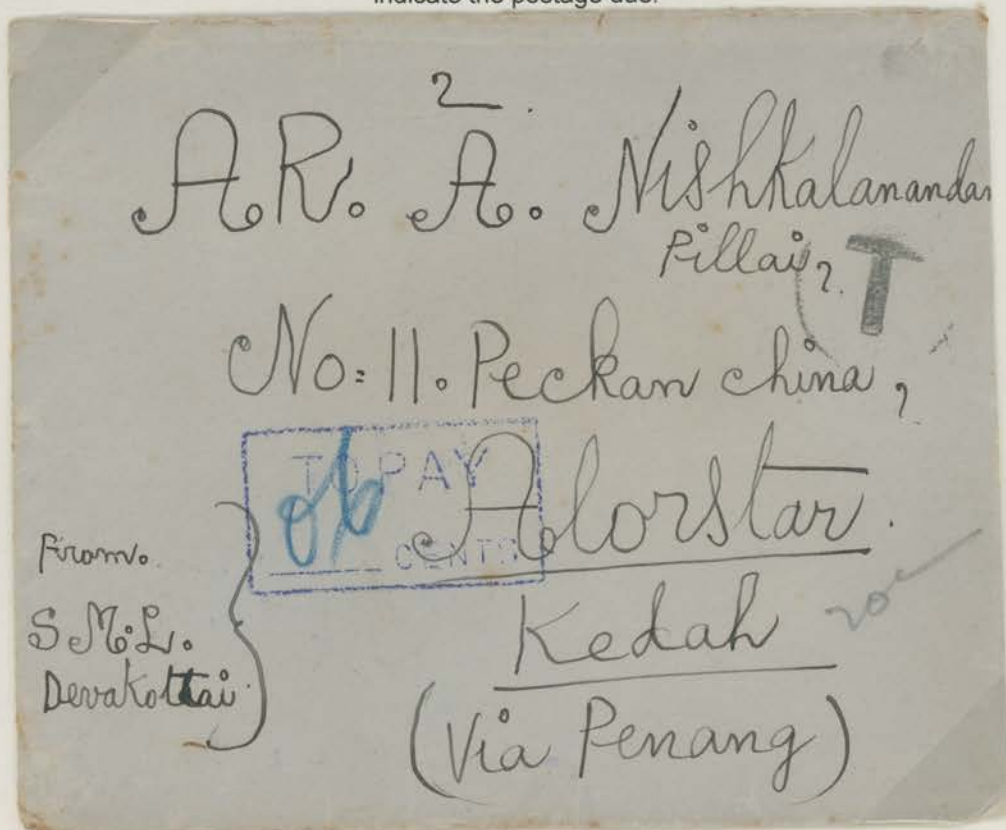 indicate the postage due.
2
AR. A. Nishkalanandan
Pillai,
T
No: 11. Peckan china,
TO PAY
06
CENTS
Alorstar.
Kedah
(Via Penang)
From.
S M. L.
Devakottai